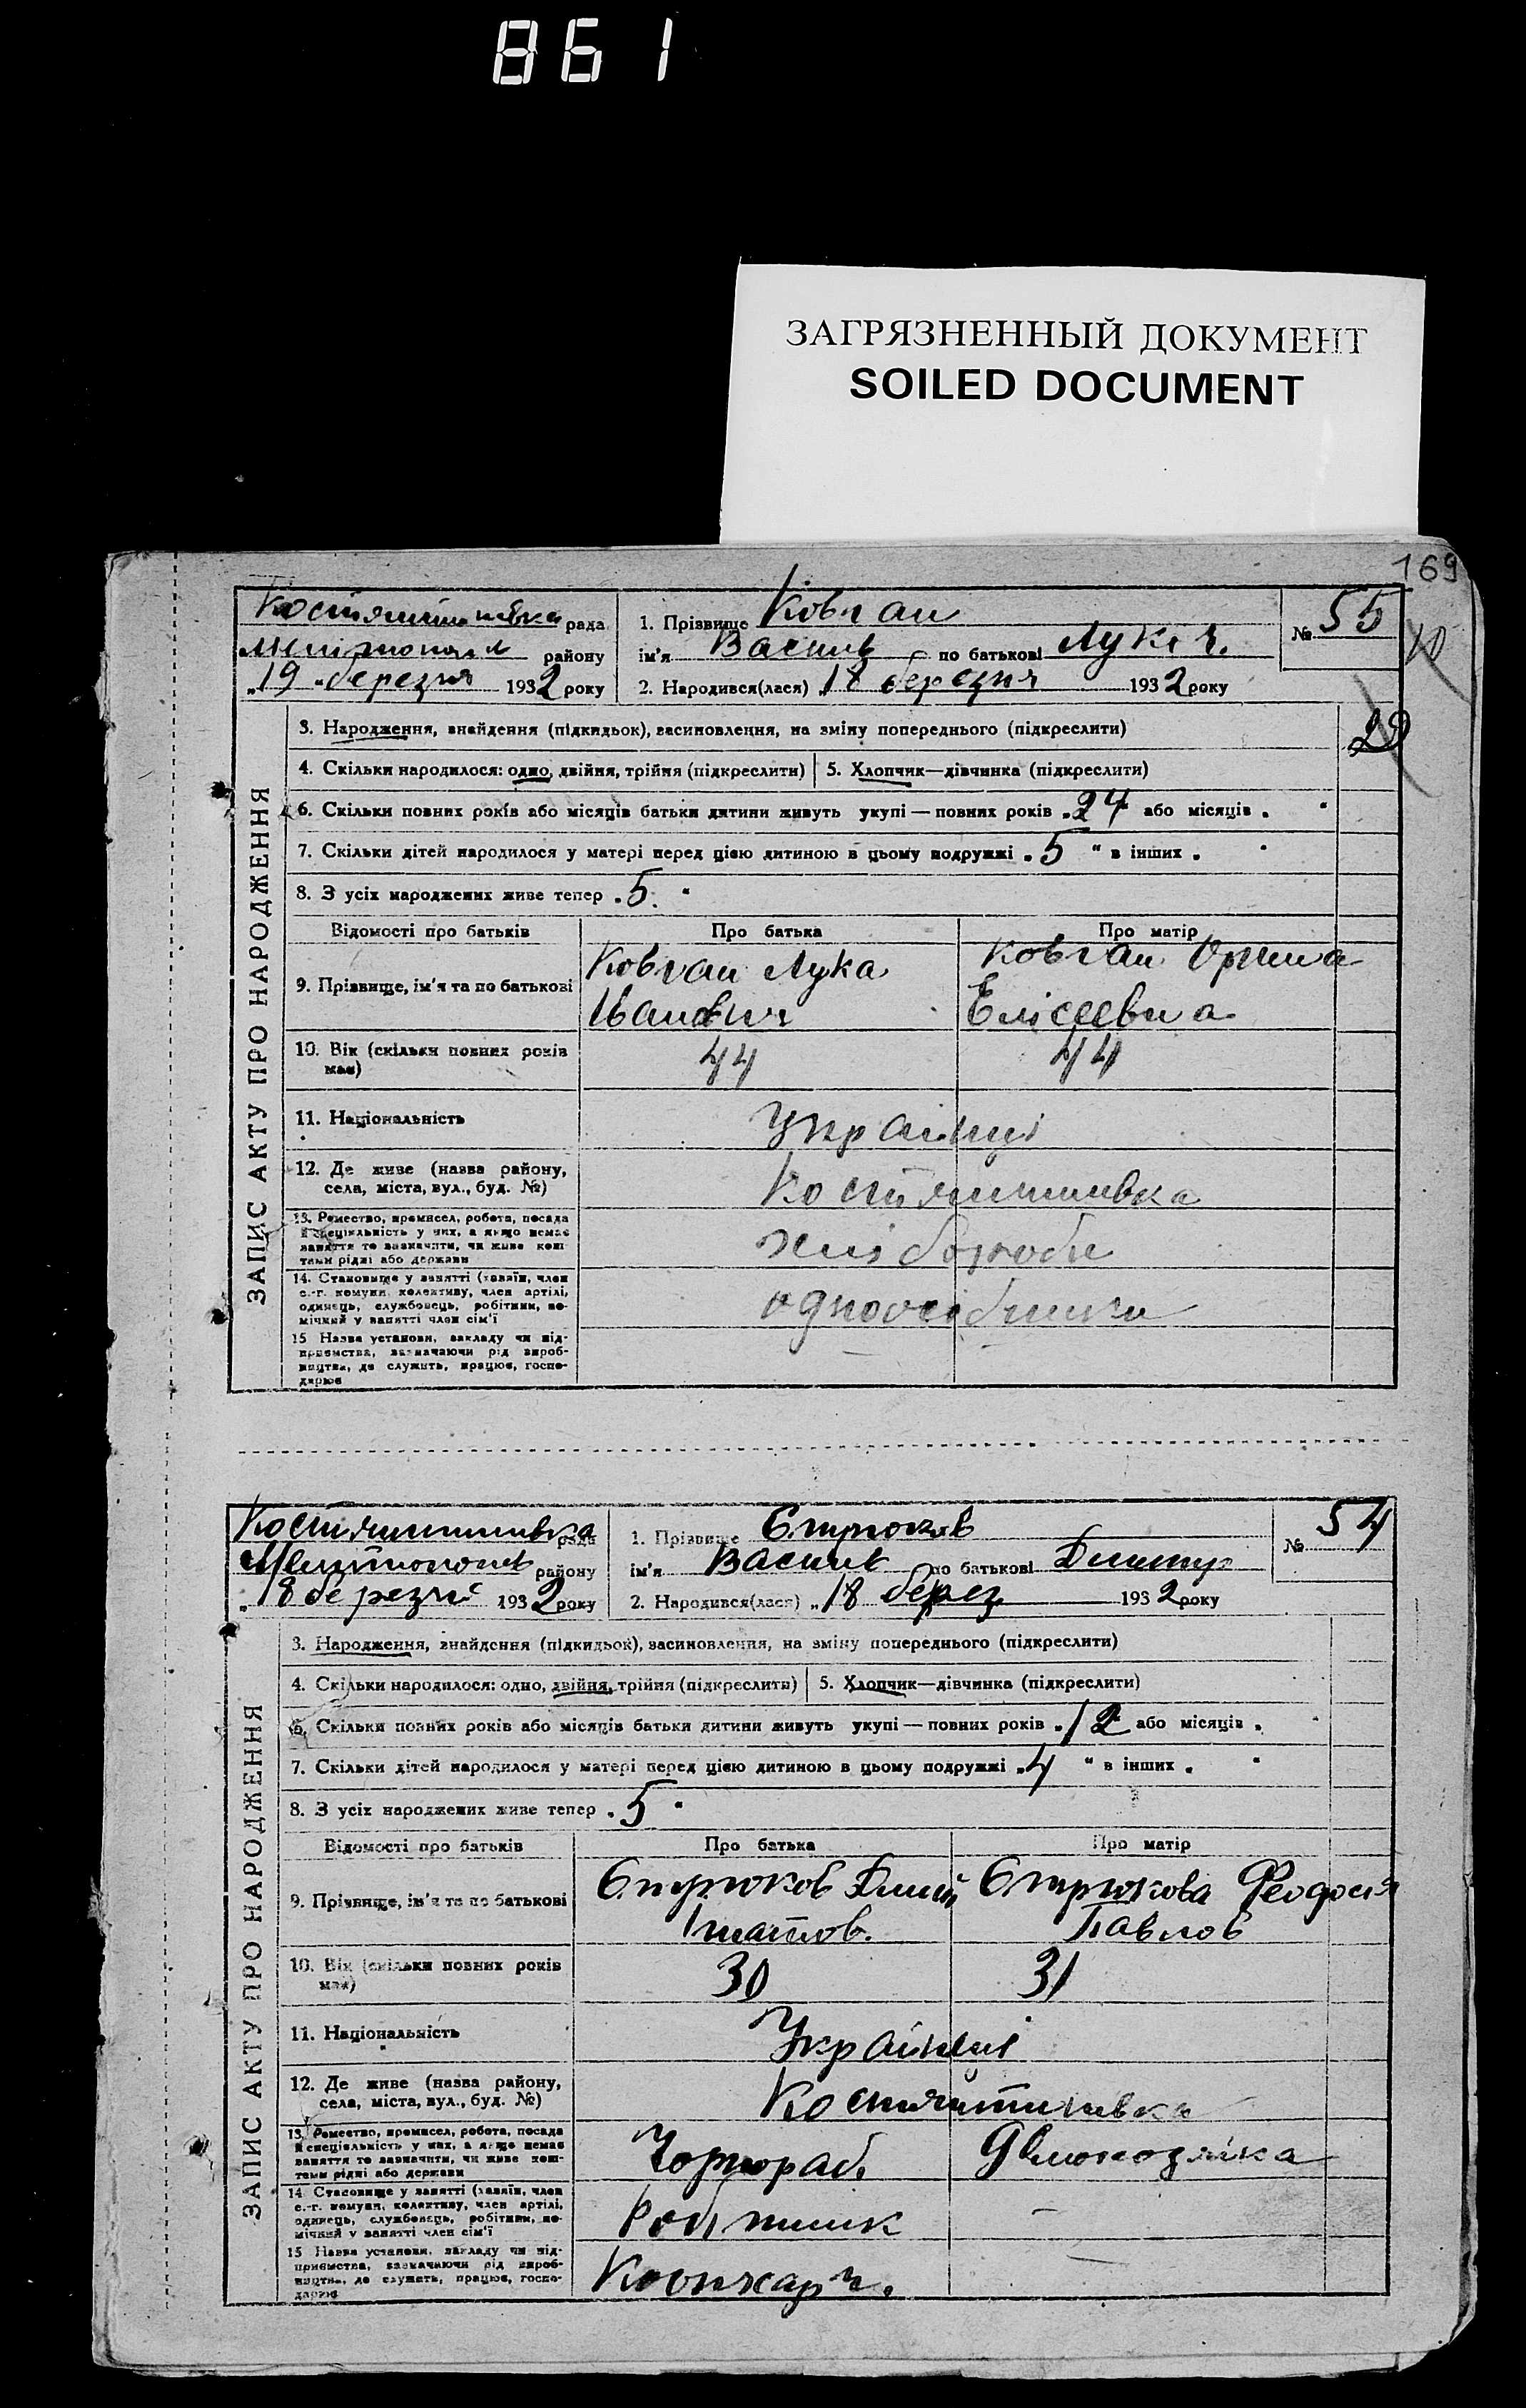 861
ЗАГРЯЗНЕННЫЙ ДОКУМЕНТ
SOILED DOCUMENT
169
Костянтинівка рада
Мелітополь району
„19 „березня 1932 року
1. Прізвище Ковган
ім'я Василь по батькові Лукіч.
2. Народився(лася) „18 березня 1932 року
№ 55
20
ЗАПИС АКТУ ПРО НАРОДЖЕННЯ
3. Народження, знайдення (підкидьок), всиновлення, на зміну попереднього (підкреслити)
4. Скільки народилося: одно, двійня, трійня (підкреслити) 5. Хлопчик—дівчинка (підкреслити)
6. Скільки повних років або місяців батьки дитини живуть укупі — повних років „24 або місяців „ "
7. Скільки дітей народилося у матері перед цією дитиною в цьому подружжі „5 " в інших „ "
8. З усіх народжених живе тепер „5 "
Відомості про батьків Про батька Про матір
9. Прізвище, ім'я та по батькові
Ковган Лука Іванович
Ковган Орина Елісеевна
10. Вік (скільки повних років має) 44 44
11. Національність Українці
12. Де живе (назва району, села, міста, вул., буд. №) Костянтинівка
13. Ремество, промисел, робота, посада й спеціяльність у них, а якщо немає заняття то зазначити, чи живе коштами рідні або держави
хліборобы
14. Становище у занятті (хазяїн, член с.-г. комуни, колективу, член артілі, одинець, службовець, робітник, помічний у занятті член сім'ї
одноосібники
15 Назва установи, закладу чи підприємства, зазначаючи рід виробництва, де служить, працює, господарює
Костянтинівка рада
Мелітополь району
„18 березня 1932 року
1. Прізвище Єтрюков
ім'я Василь по батькові Дмитр
2. Народився(лася) „18 берез 1932 року
№ 54
ЗАПИС АКТУ ПРО НАРОДЖЕННЯ
3. Народження, знайдення (підкидьок), засиновлення, на зміну попереднього (підкреслити)
4. Скільки народилося: одно, двійня, трійня (підкреслити) 5. Хлопчик—дівчинка (підкреслити)
6. Скільки повних років або місяців батьки дитини живуть укупі — повних років „12 або місяців „ "
7. Скільки дітей народилося у матері перед цією дитиною в цьому подружжі „4 " в інших „ "
8. З усіх народжених живе тепер „5 "
Відомості про батьків Про батька Про матір
9. Прізвище, ім'я та по батькові
Ігнатов.
Феодосія
Павлов
10. Вік (скільки повних років має) 30 31
11. Національність Українці
12. Де живе (назва району, села, міста, вул., буд. №) Костянтинівка
13. Ремество, промисел, робота, посада й спеціяльність у них, а якщо немає заняття то зазначити, чи живе коштами рідні або держави
Чорнораб. Домохозяйка
14. Становище у занятті (хазяїн, член с.-г. комуни, колективу, член артілі, одинець, службовець, робітник, помічний у занятті член сім'ї
Робітник —
15 Назва установи, закладу чи підприємства, зазначаючи рід виробництва, де служить, працює, господарює